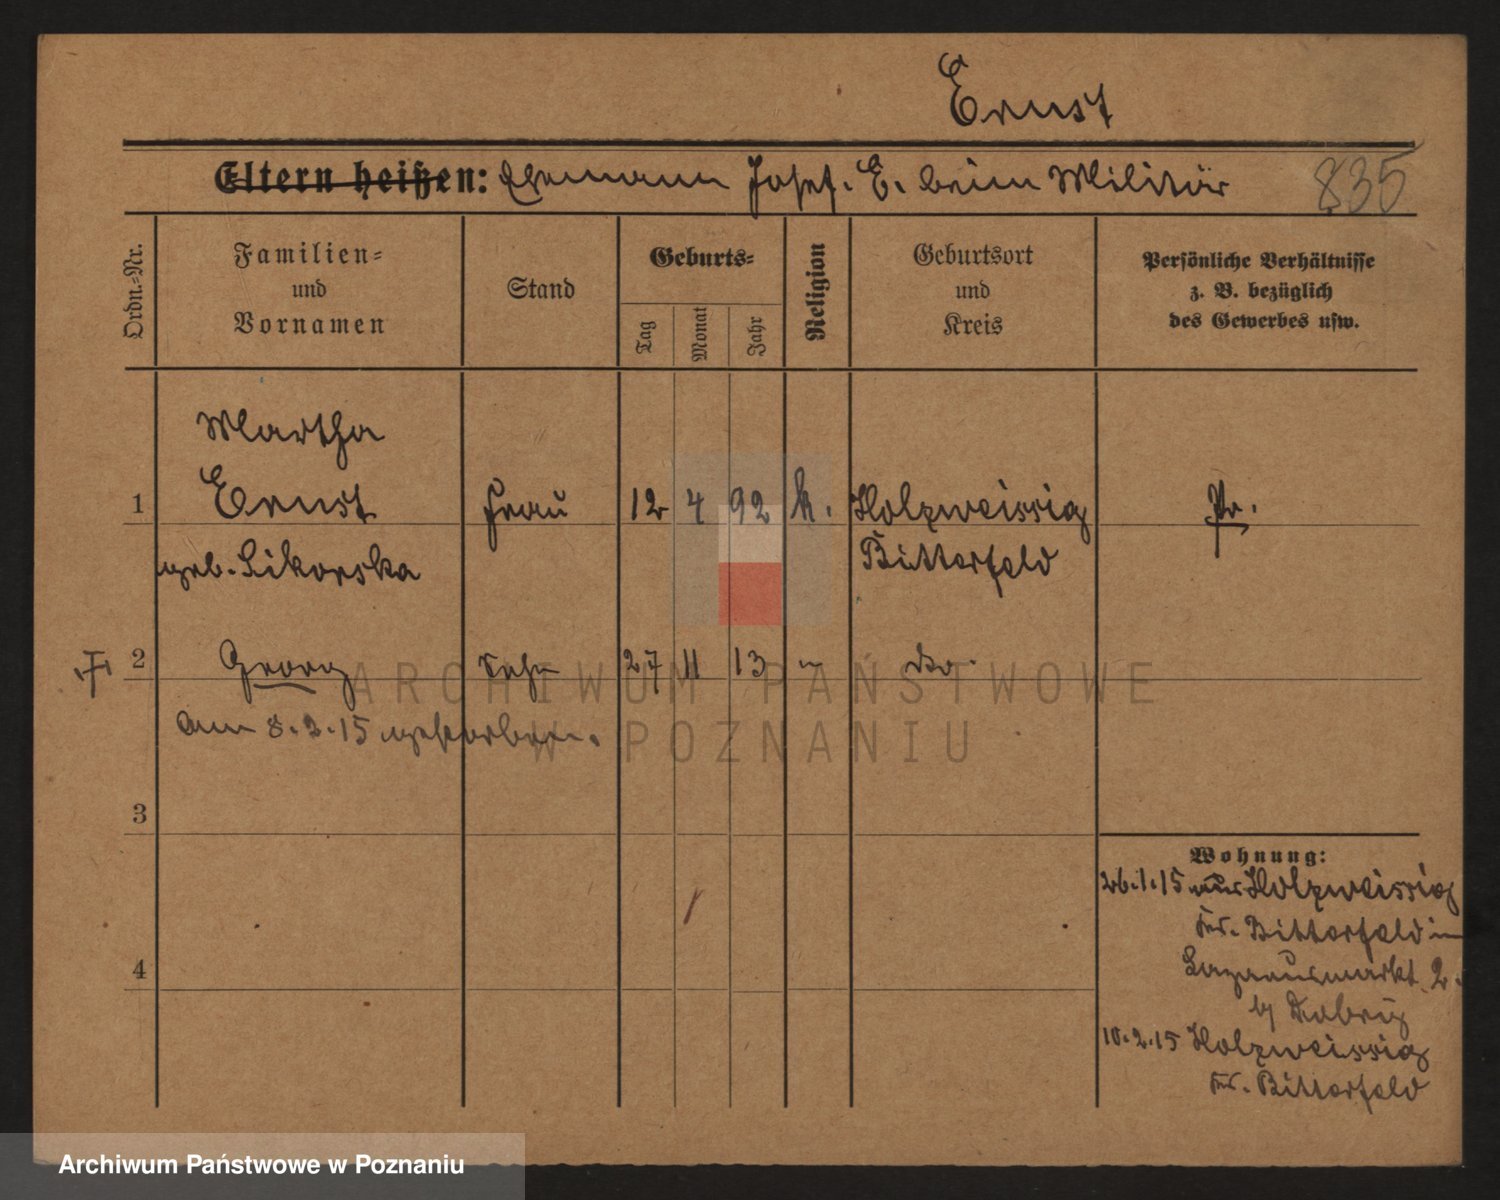 Ernst
Eltern heißen: Ehemann Josef. E. beim Militär 835
Ordn.-Nr.
Familien-
und
Vornamen
Stand
Geburts-
Tag
Monat
Jahr
Religion
Geburtsort
und
Kreis
Persönliche Verhältnisse
z. B. bezüglich
des Gewerbes usw.
Martha
1 Ernst Frau 12 4 92 k. Holzweissig Pr.
geb. Sikorska Bitterfeld
2 Georg Sohn 27 11 13 " do.
am 8.2.15 gestorben.
3
4
Wohnung:
26.1.15 aus Holzweissig
Kr. Bitterfeld in
Lazarusmarkt 2.
by
10.2.15 Holzweissig
Kr. Bitterfeld
ARCHIWUM PAŃSTWOWE
W POZNANIU
Archiwum Państwowe w Poznaniu